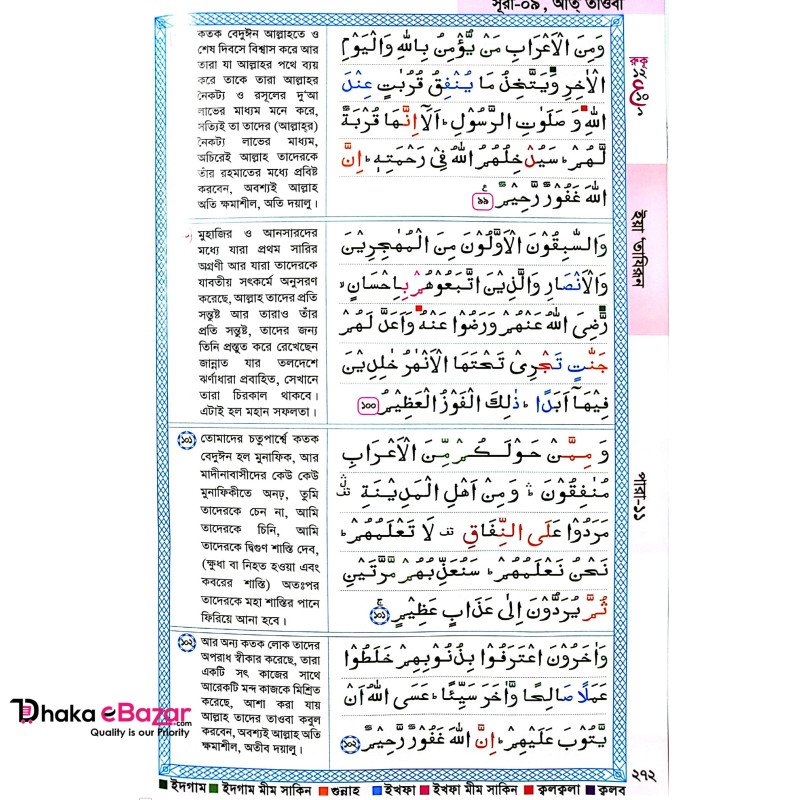 সূরা-০৯, আত্ তাওবা
কতক বেদুঈন আল্লাহতে ও
শেষ দিবসে বিশ্বাস করে আর
তারা যা আল্লাহর পথে ব্যয়
করে তাকে তারা আল্লাহর
নৈকট্য ও রসূলের দু'আ
লাভের মাধ্যম মনে করে,
সত্যিই তা তাদের (আল্লাহর)
নৈকট্য লাভের মাধ্যম,
অচিরেই আল্লাহ তাদেরকে
তাঁর রহমাতের মধ্যে প্রবিষ্ট
করবেন, অবশ্যই আল্লাহ
অতি ক্ষমাশীল, অতি দয়ালু।
وَمِنَ الْاَعْرَابِ مَنْ يُّؤْمِنُ بِاللّٰهِ وَالْيَوْمِ
الْاٰخِرِ وَيَتَّخِذُ مَا يُنْفِقُ قُرُبٰتٍ عِنْدَ
اللّٰهِ وَ صَلَوٰتِ الرَّسُوْلِ ؕ اَلَاۤ اِنَّهَا قُرْبَةٌ
لَّهُمْ ؕ سَيُدْخِلُهُمُ اللّٰهُ فِىْ رَحْمَتِهٖ ؕ اِنَّ
اللّٰهَ غَفُوْرٌ رَّحِيْمٌ ৯৯
মুহাজির ও আনসারদের
মধ্যে যারা প্রথম সারির
অগ্রণী আর যারা তাদেরকে
যাবতীয় সৎকর্মে অনুসরণ
করেছে, আল্লাহ তাদের প্রতি
সন্তুষ্ট আর তারাও তাঁর
প্রতি সন্তুষ্ট, তাদের জন্য
তিনি প্রস্তুত করে রেখেছেন
জান্নাত যার তলদেশে
ঝর্ণাধারা প্রবাহিত, সেখানে
তারা চিরকাল থাকবে।
এটাই হল মহান সফলতা।
وَالسّٰبِقُوْنَ الْاَوَّلُوْنَ مِنَ الْمُهٰجِرِيْنَ
وَالْاَنْصَارِ وَالَّذِيْنَ اتَّبَعُوْهُمْ بِاِحْسَانٍ ۙ
رَّضِىَ اللّٰهُ عَنْهُمْ وَرَضُوْا عَنْهُ وَاَعَدَّ لَهُمْ
جَنّٰتٍ تَجْرِىْ تَحْتَهَا الْاَنْهٰرُ خٰلِدِيْنَ
فِيْهَاۤ اَبَدًا ؕ ذٰلِكَ الْفَوْزُ الْعَظِيْمُ ১০০
১০১ তোমাদের চতুপার্শ্বে কতক
বেদুঈন হল মুনাফিক, আর
মাদীনাবাসীদের কেউ কেউ
মুনাফিকীতে অনঢ়, তুমি
তাদেরকে চেন না, আমি
তাদেরকে চিনি, আমি
তাদেরকে দ্বিগুণ শাস্তি দেব,
(ক্ষুধা বা নিহত হওয়া এবং
কবরের শাস্তি) অতঃপর
তাদেরকে মহা শাস্তির পানে
ফিরিয়ে আনা হবে।
وَ مِمَّنْ حَوْلَكُمْ مِّنَ الْاَعْرَابِ
مُنٰفِقُوْنَ ۛؕ وَ مِنْ اَهْلِ الْمَدِيْنَةِ
مَرَدُوْا عَلَى النِّفَاقِ لَا تَعْلَمُهُمْ ؕ
نَحْنُ نَعْلَمُهُمْ ؕ سَنُعَذِّبُهُمْ مَّرَّتَيْنِ
ثُمَّ يُرَدُّوْنَ اِلٰى عَذَابٍ عَظِيْمٍ ১০১
১০২ আর অন্য কতক লোক তাদের
অপরাধ স্বীকার করেছে, তারা
একটি সৎ কাজের সাথে
আরেকটি মন্দ কাজকে মিশ্রিত
করেছে, আশা করা যায়
আল্লাহ তাদের তাওবা কবুল
করবেন, অবশ্যই আল্লাহ অতি
ক্ষমাশীল, অতীব দয়ালু।
وَاٰخَرُوْنَ اعْتَرَفُوْا بِذُنُوْبِهِمْ خَلَطُوْا
عَمَلًا صَالِحًا وَّاٰخَرَ سَيِّئًا ؕ عَسَى اللّٰهُ اَنْ
يَّتُوْبَ عَلَيْهِمْ ؕ اِنَّ اللّٰهَ غَفُوْرٌ رَّحِيْمٌ ১০২
রুকু
ইয়া তাযিরূন
পারা-১১
২৭২
Dhaka eBazar.com
Quality is our Priority
ইদগাম ইদগাম মীম সাকিন গুন্নাহ ইখফা ইখফা মীম সাকিন ক্বলক্বলা ক্বলব